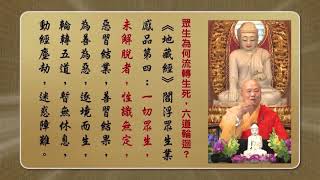 眾生為何流轉生死，六道輪迴？
《地藏經》閻浮眾生業
感品第四：一切眾生，
未解脫者，性識無定，
惡習結業，善習結果，
為善為惡，逐境而生，
輪轉五道，暫無休息，
動經塵劫，迷惑障難。